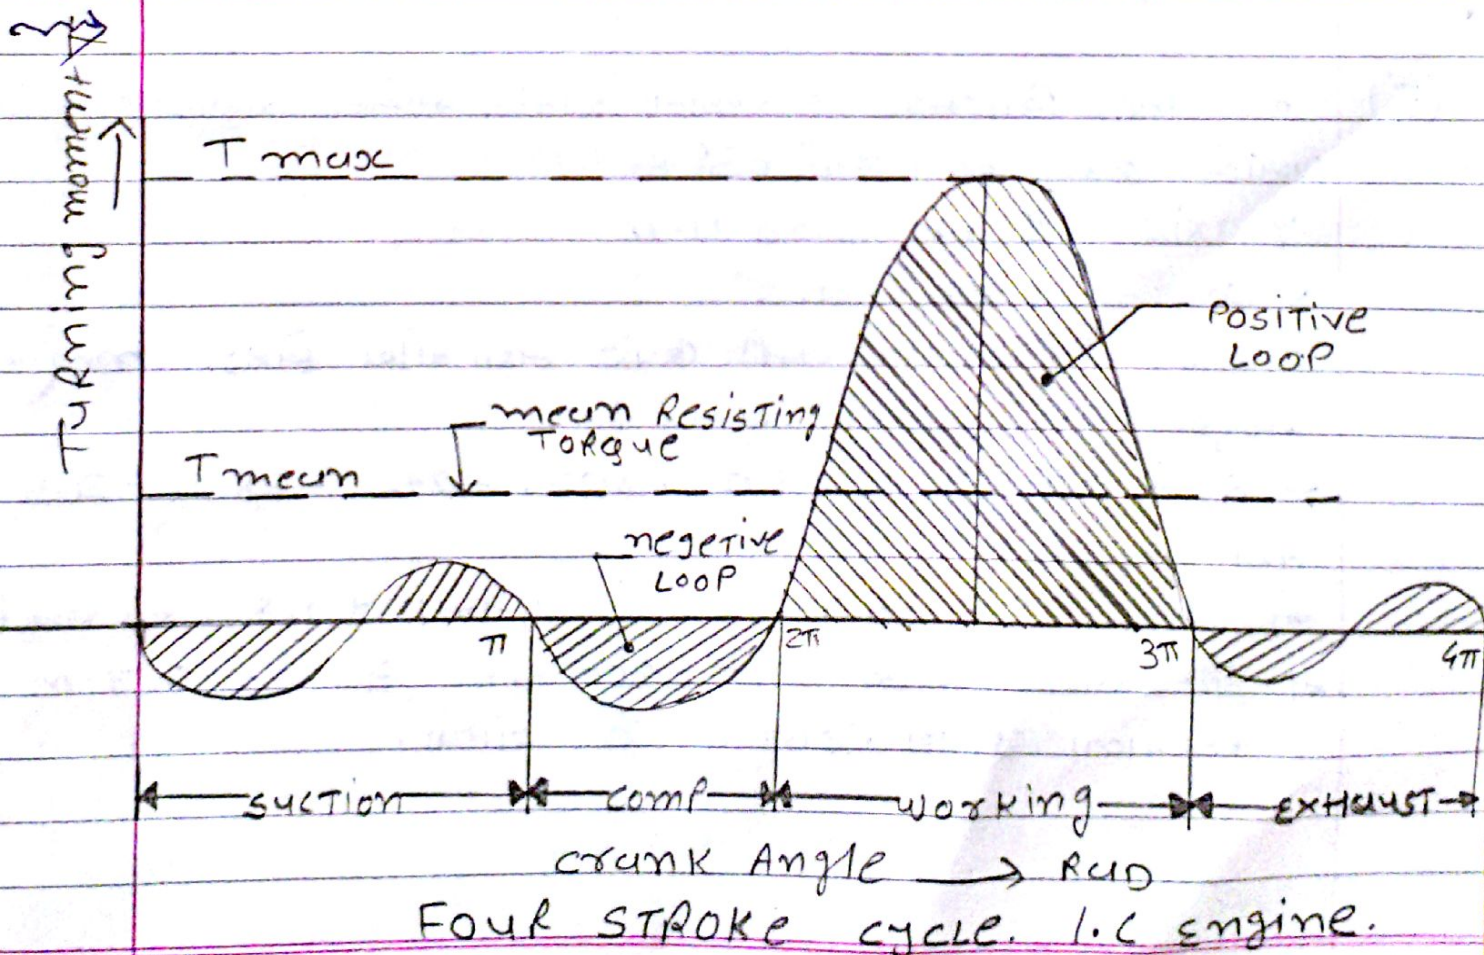 Turning moment
T max
Positive
Loop
mean Resisting
Torque
T mean
negetive
Loop
π
2π
3π
4π
suction
comp
working
Exhaust
Crank Angle → RAD
Four stroke cycle. I.C engine.